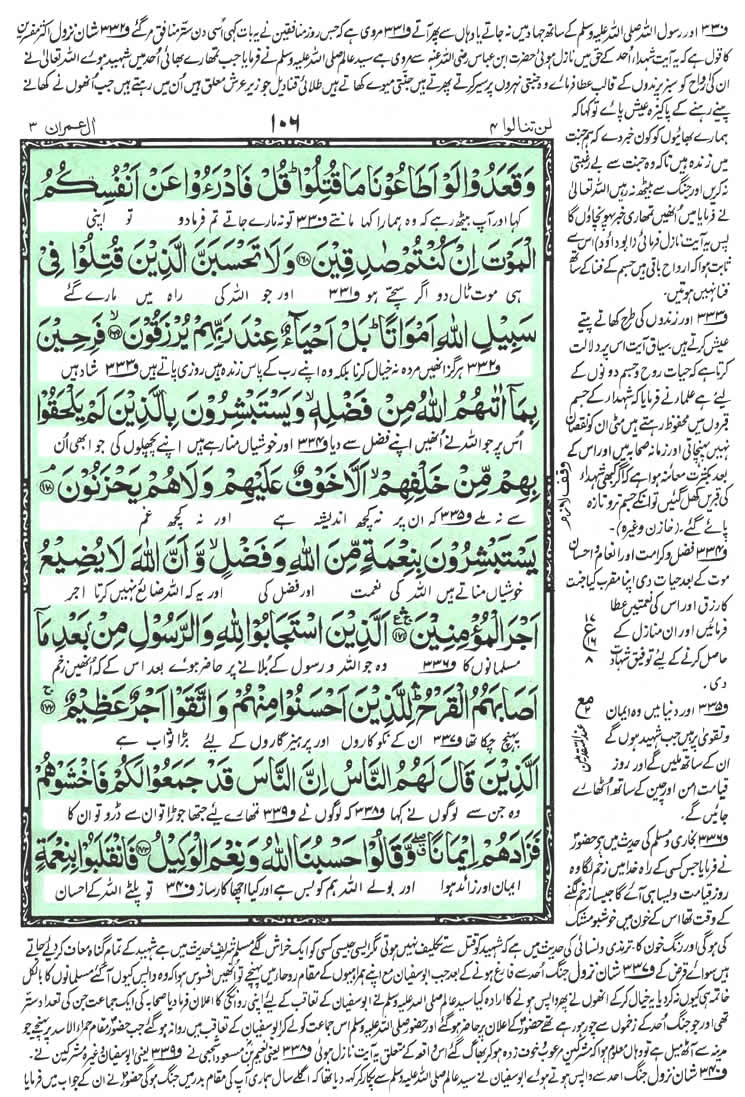 و۳۳۰ اور رسول اللہ صلی اللہ علیہ وسلم کے ساتھ جہاد میں نہ جاتے یا وہاں سے پھر آتے و۳۳۱ مروی ہے کہ جس روز منافقین نے یہ بات کہی اسی دن ستر منافق مر گئے و۳۳۲ شان نزول اکثر مفسرین
کا قول ہے کہ یہ آیت شہداء احد کے حق میں نازل ہوئی حضرت ابن عباس رضی اللہ عنہ سے مروی ہے سید عالم صلی اللہ علیہ وسلم نے فرمایا جب تمھارے بھائی احد میں شہید ہوے اللہ تعالیٰ نے
ان کی ارواح کو سبز پرندوں کے قالب عطا فرمائے وہ جنتی نہروں پر سیر کرتے پھرتے ہیں جنتی میوے کھاتے ہیں طلائی قنادیل جو زیر عرش معلق ہیں اُن میں رہتے ہیں جب اُنھوں نے کھانے
پینے رہنے کے پاکیزہ عیش پائے تو کہا کہ
ہمارے بھائیوں کو کون خبر دے کہ ہم جنت
میں زندہ ہیں تاکہ وہ جنت سے بے رغبتی
نہ کریں اور جنگ سے بیٹھ نہ رہیں اللہ تعالیٰ
نے فرمایا میں اُنھیں تمھاری خبر پہونچاؤں گا
پس یہ آیت نازل فرمائی (ابو داؤد) اس سے
ثابت ہوا کہ ارواح باقی ہیں جسم کے فنا کے ساتھ
فنا نہیں ہوتیں۔
و۳۳۳ اور زندوں کی طرح کھاتے پیتے
عیش کرتے ہیں سیاق آیت اس پر دلالت
کرتا ہے کہ حیات روح و جسم دونوں کے
لئے ہے علماء نے فرمایا کہ شہداء کے جسم
قبروں میں محفوظ رہتے ہیں مٹی ان کو نقصان
نہیں پہنچاتی اور زمانہ صحابہ میں اور اس کے
بعد بکثرت معائنہ ہوا ہے کہ اگر کبھی شہداء
کی قبریں کھل گئیں تو انکے جسم تر و تازہ
پائے گئے۔ (خازن وغیرہ)۔
و۳۳۴ فضل و کرامت اور انعام و احسان
موت کے بعد حیات دی اپنا مقرب کیا جنت
کا رزق اور اس کی نعمتیں عطا
فرمائیں اور ان منازل کے
حاصل کرنے کے لیے توفیق شہادت
دی۔
و۳۳۵ اور دنیا میں وہ ایمان
و تقویٰ پر ہیں جب شہید ہوں گے
ان کے ساتھ ملیں گے اور روز
قیامت امن اور چین کے ساتھ اُٹھائے
جائیں گے۔
و۳۳۶ بخاری و مسلم کی حدیث میں ہے حضور
نے فرمایا جس کسی کے راہ خدا میں زخم لگا وہ
روز قیامت ویسا ہی آئے گا جیسا زخم لگنے
کے وقت تھا اس کے خون میں خوشبو مشک
لن تنالوا ۴
۱۰۶
اٰل عمران ۳
وَقَعَدُوْا لَوْ اَطَاعُوْنَا مَا قُتِلُوْا ؕ قُلْ فَادْرَءُوْا عَنْ اَنْفُسِكُمُ
کہا اور آپ بیٹھ رہے کہ وہ ہمارا کہا مانتے و۳۳۰ تو نہ مارے جاتے تم فرما دو تو اپنی
الْمَوْتَ اِنْ كُنْتُمْ صٰدِقِيْنَ ۱۶۸ وَلَا تَحْسَبَنَّ الَّذِيْنَ قُتِلُوْا فِیْ
ہی موت ٹال دو اگر سچے ہو و۳۳۱ اور جو اللہ کی راہ میں مارے گئے
سَبِيْلِ اللّٰهِ اَمْوَاتًا ؕ بَلْ اَحْيَآءٌ عِنْدَ رَبِّهِمْ يُرْزَقُوْنَ ۱۶۹ ۙ فَرِحِيْنَ
و۳۳۲ ہرگز انھیں مردہ نہ خیال کرنا بلکہ وہ اپنے رب کے پاس زندہ ہیں روزی پاتے ہیں و۳۳۳ شاد ہیں
بِمَآ اٰتٰىهُمُ اللّٰهُ مِنْ فَضْلِهٖ ۙ وَيَسْتَبْشِرُوْنَ بِالَّذِيْنَ لَمْ يَلْحَقُوْا
اُس پر جو اللہ نے اُنھیں اپنے فضل سے دیا و۳۳۴ اور خوشیاں منا رہے ہیں اپنے پچھلوں کی جو ابھی اُن
بِهِمْ مِّنْ خَلْفِهِمْ ۙ اَلَّا خَوْفٌ عَلَيْهِمْ وَلَا هُمْ يَحْزَنُوْنَ ۱۷۰ ۘ
سے نہ ملے و۳۳۵ کہ ان پر نہ کچھ اندیشہ ہے اور نہ کچھ غم
يَسْتَبْشِرُوْنَ بِنِعْمَةٍ مِّنَ اللّٰهِ وَفَضْلٍ ۙ وَّاَنَّ اللّٰهَ لَا يُضِيْعُ
خوشیاں مناتے ہیں اللہ کی نعمت اور فضل کی اور یہ کہ اللہ ضائع نہیں کرتا اجر
اَجْرَ الْمُؤْمِنِيْنَ ۱۷۱ اَلَّذِيْنَ اسْتَجَابُوْا لِلّٰهِ وَالرَّسُوْلِ مِنْۢ بَعْدِ مَآ
مسلمانوں کا و۳۳۶ وہ جو اللہ و رسول کے بلانے پر حاضر ہوے بعد اس کے کہ اُنھیں زخم
اَصَابَهُمُ الْقَرْحُ ؕ لِلَّذِيْنَ اَحْسَنُوْا مِنْهُمْ وَاتَّقَوْا اَجْرٌ عَظِيْمٌ ۱۷۲ ۚ
پہنچ چکا تھا و۳۳۷ ان کے نکو کاروں اور پرہیزگاروں کے لیے بڑا ثواب ہے
اَلَّذِيْنَ قَالَ لَهُمُ النَّاسُ اِنَّ النَّاسَ قَدْ جَمَعُوْا لَكُمْ فَاخْشَوْهُمْ
وہ جن سے لوگوں نے کہا و۳۳۸ کہ لوگوں نے و۳۳۹ تمھارے لیے جتھا جوڑا تو ان سے ڈرو تو ان کا
فَزَادَهُمْ اِيْمَانًا ۖ وَّقَالُوْا حَسْبُنَا اللّٰهُ وَنِعْمَ الْوَكِيْلُ ۱۷۳ فَانْقَلَبُوْا بِنِعْمَةٍ
ایمان اور زائد ہوا اور بولے اللہ ہم کو بس ہے اور کیا اچھا کارساز و۳۴۰ تو پلٹے اللہ کے احسان
وقف لازم
۱۷
ع
۱۶
۸
مع
عند المتقدمین
کی ہو گی اور رنگ خون کا۔ ترمذی و نسائی کی حدیث میں ہے کہ شہید کو قتل سے تکلیف نہیں ہوتی مگر ایسی جیسی کسی کو ایک خراش لگے مسلم شریف حدیث میں ہے شہید کے تمام گناہ معاف کر دیے جاتے
ہیں سوائے قرض کے و۳۳۷ شان نزول جنگ اُحد سے فارغ ہونے کے بعد جب ابوسفیان مع اپنے ہمراہیوں کے مقام روحاء میں پہنچے تو اُنھیں افسوس ہوا کہ وہ واپس کیوں آگئے مسلمانوں کا بالکل
خاتمہ ہی کیوں نہ کر دیا یہ خیال کر کے انھوں نے پھر واپس ہونے کا ارادہ کیا سید عالم صلی اللہ علیہ وسلم نے ابوسفیان کے تعاقب کے لیے اپنی روانگی کا اعلان فرما دیا صحابہ کی ایک جماعت جن کی تعداد ستر
تھی اور جو جنگ اُحد کے زخموں سے چور ہو رہے تھے حضور کے اعلان پر حاضر ہو گئے اور حضور صلی اللہ علیہ وسلم اس جماعت کو لے کر ابوسفیان کے تعاقب میں روانہ ہو گئے جب حضور مقام حمراء الاسد پر پہنچے جو
مدینہ سے آٹھ میل ہے تو وہاں معلوم ہوا کہ مشرکین مرعوب و خوف زدہ ہو کر بھاگ گئے اس واقعہ کے متعلق یہ آیت نازل ہوئی و۳۳۸ یعنی نعیم بن مسعود اشجعی نے و۳۳۹ یعنی ابوسفیان وغیرہ مشرکین نے۔
و۳۴۰ شان نزول جنگ احد سے واپس ہوتے ہوئے ابوسفیان نے سید عالم صلی اللہ علیہ وسلم سے پکار کر کہہ دیا تھا کہ اگلے سال ہماری آپ کی مقام بدر میں جنگ ہو گی حضور نے ان کے جواب میں فرمایا